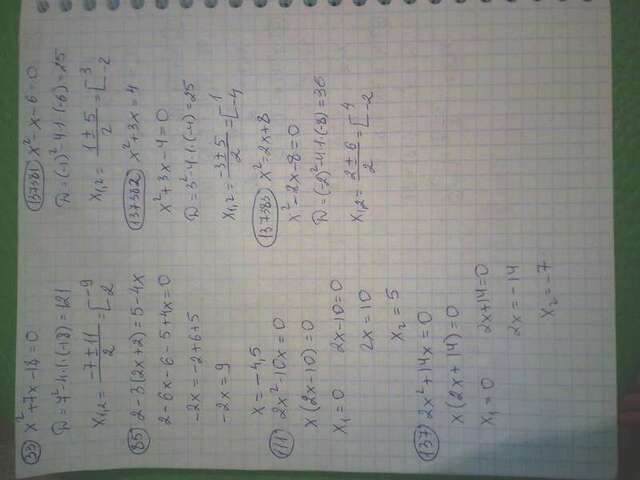 33 x²+7x-18=0
D=7²-4·1·(-18)=121
x₁,₂ = (-7±11)/2 = [-9
2
85 2-3(2x+2)=5-4x
2-6x-6-5+4x=0
-2x=-2+6+5
-2x=9
x=-4,5
111 2x²-10x=0
x(2x-10)=0
x₁=0 2x-10=0
2x=10
x₂=5
137 2x²+14x=0
x(2x+14)=0
x₁=0 2x+14=0
2x=-14
x₂=-7
137381 x²-x-6=0
D=(-1)²-4·1·(-6)=25
x₁,₂ = (1±5)/2 = [3
-2
137382 x²+3x=4
x²+3x-4=0
D=3²-4·1·(-4)=25
x₁,₂ = (-3±5)/2 = [1
-4
137383 x²=2x+8
x²-2x-8=0
D=(-2)²-4·1·(-8)=36
x₁,₂ = (2±6)/2 = [4
-2